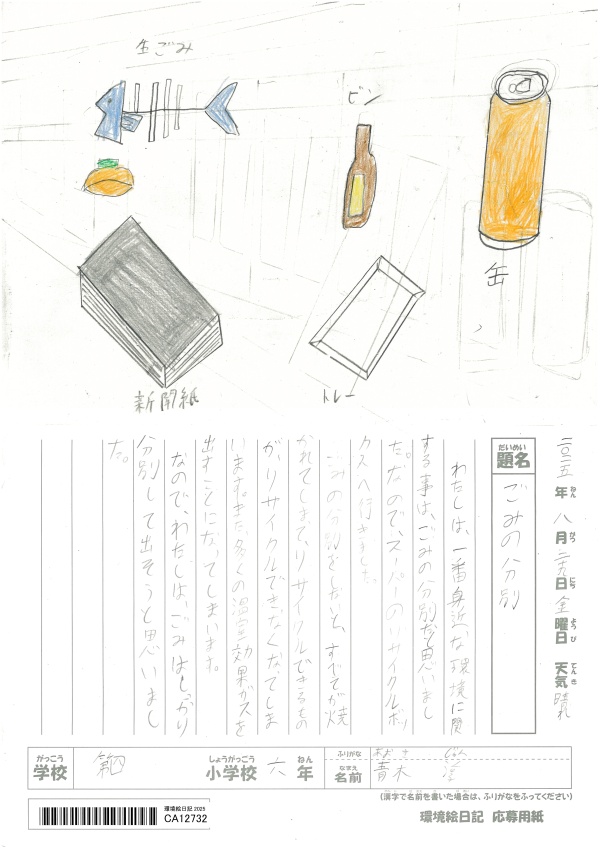 生ごみ
ビン
缶
新聞紙
トレー
二〇二五年八月二十九日金曜日 天気晴れ
ねん がつ にち ようび てんき
だいめい
題名 ごみの分別
わたしは、一番身近な環境に関
する事は、ごみの分別だと思いまし
た。なので、スーパーのリサイクルボッ
クスへ行きました。
ごみの分別をしないと、すべてが焼
かれてしまて、リサイクルできるもの
が、リサイクルできなくなてしま
います。また、多くの温室効果ガスを
出すことになってしまいます。
なので、わたしは、ごみはしっかり
分別して出そうと思いまし
た。
がっこう しょうがっこう ねん ふりがな あおき
学校 第四 小学校 六年 なまえ 名前 青木
(漢字で名前を書いた場合は、ふりがなをふってください)
環境絵日記 2025
CA12732
環境絵日記 応募用紙